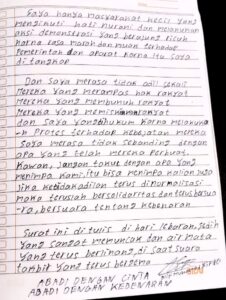 Saya hanya masyarakat kecil yang
mengikuti hati nurani, dan melakukan
aksi demonstrasi yang berujung ricuh
karna rasa marah dan muak terhadap
Pemerintah dan aparat karna itu saya
di tangkap
Dan saya merasa tidak adil sekali
Mereka yang merampas hak rakyat
Mereka yang membunuh rakyat
Mereka yang memiskinkan rakyat
Dan saya yang dihukum karna melakuka
n Protes terhadap kebejatan mereka
Saya merasa tidak sebanding dengan
apa yang telah mereka perbuat.
Kawan, jangan takut dengan apa yang
menimpa kami, itu bisa menimpa kalian juga
jika kebidakadilan terus dinormalisasi
maka teruslah bersolidaritas dan terus bersua
ra, bersuara tentang kebenaran
Surat ini di tulis di hari lebaran,
yang sangat memuncak dan air mada
yang terus berlinang, di saat suara
takbir yang terus bergema
ABADI DENGAN CINTA
ABADI DENGAN KEBENARAN